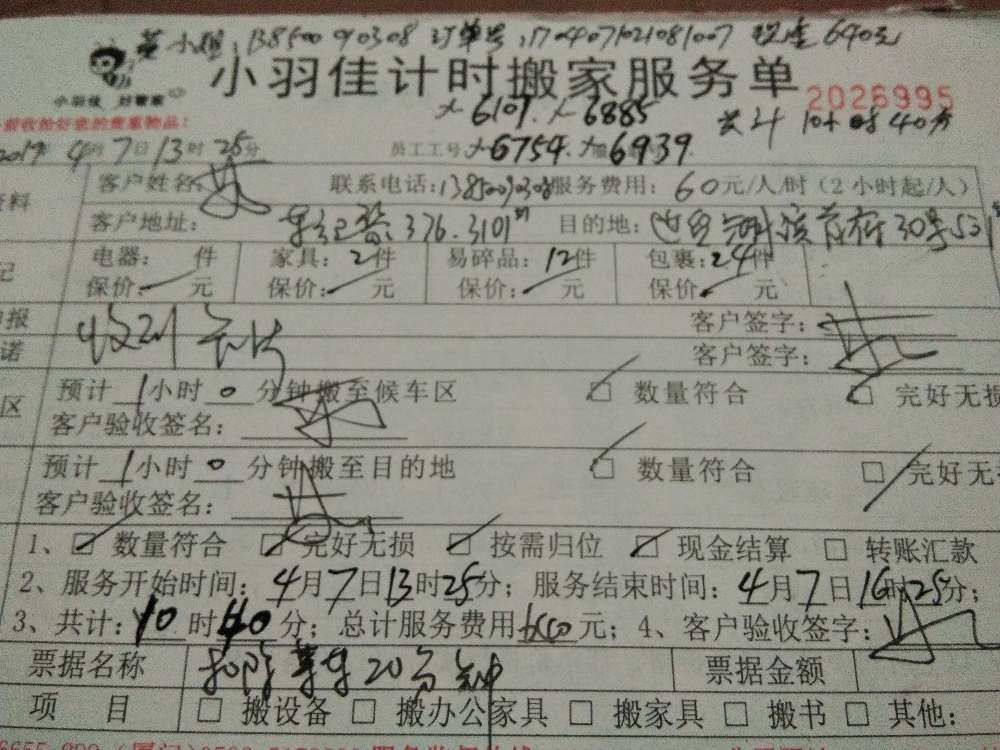 小姐 13850090308 订单号:170407021081007 现金640元
小羽佳 好管家
小羽佳计时搬家服务单
2026995
x-6109. x-6885 共计10小时40分
前收拾好您的贵重物品!
2017年4月7日13时25分
员工工号:x-6754. x-6939
资料 客户姓名: 联系电话:13850090308服务费用:60元/人/时(2小时起/人)
客户地址: 376.3101 目的地: 30号501
记 电器: 件 家具:2件 易碎品:12件 包裹:24件
保价: 元 保价: 元 保价: 元 保价: 元
申报 客户签字:
诺 客户签字:
区 预计1小时0分钟搬至候车区 数量符合 完好无损
客户验收签名:
预计1小时0分钟搬至目的地 数量符合 完好无
客户验收签名:
1、 数量符合 完好无损 按需归位 现金结算 转账汇款
2、服务开始时间:4月7日13时25分;服务结束时间:4月7日16时25分;
3、共计:10时40分;总计服务费用 元;4、客户验收签字:
票据名称 扣除等车20分钟 票据金额
项 目 搬设备 搬办公家具 搬家具 搬书 其他: